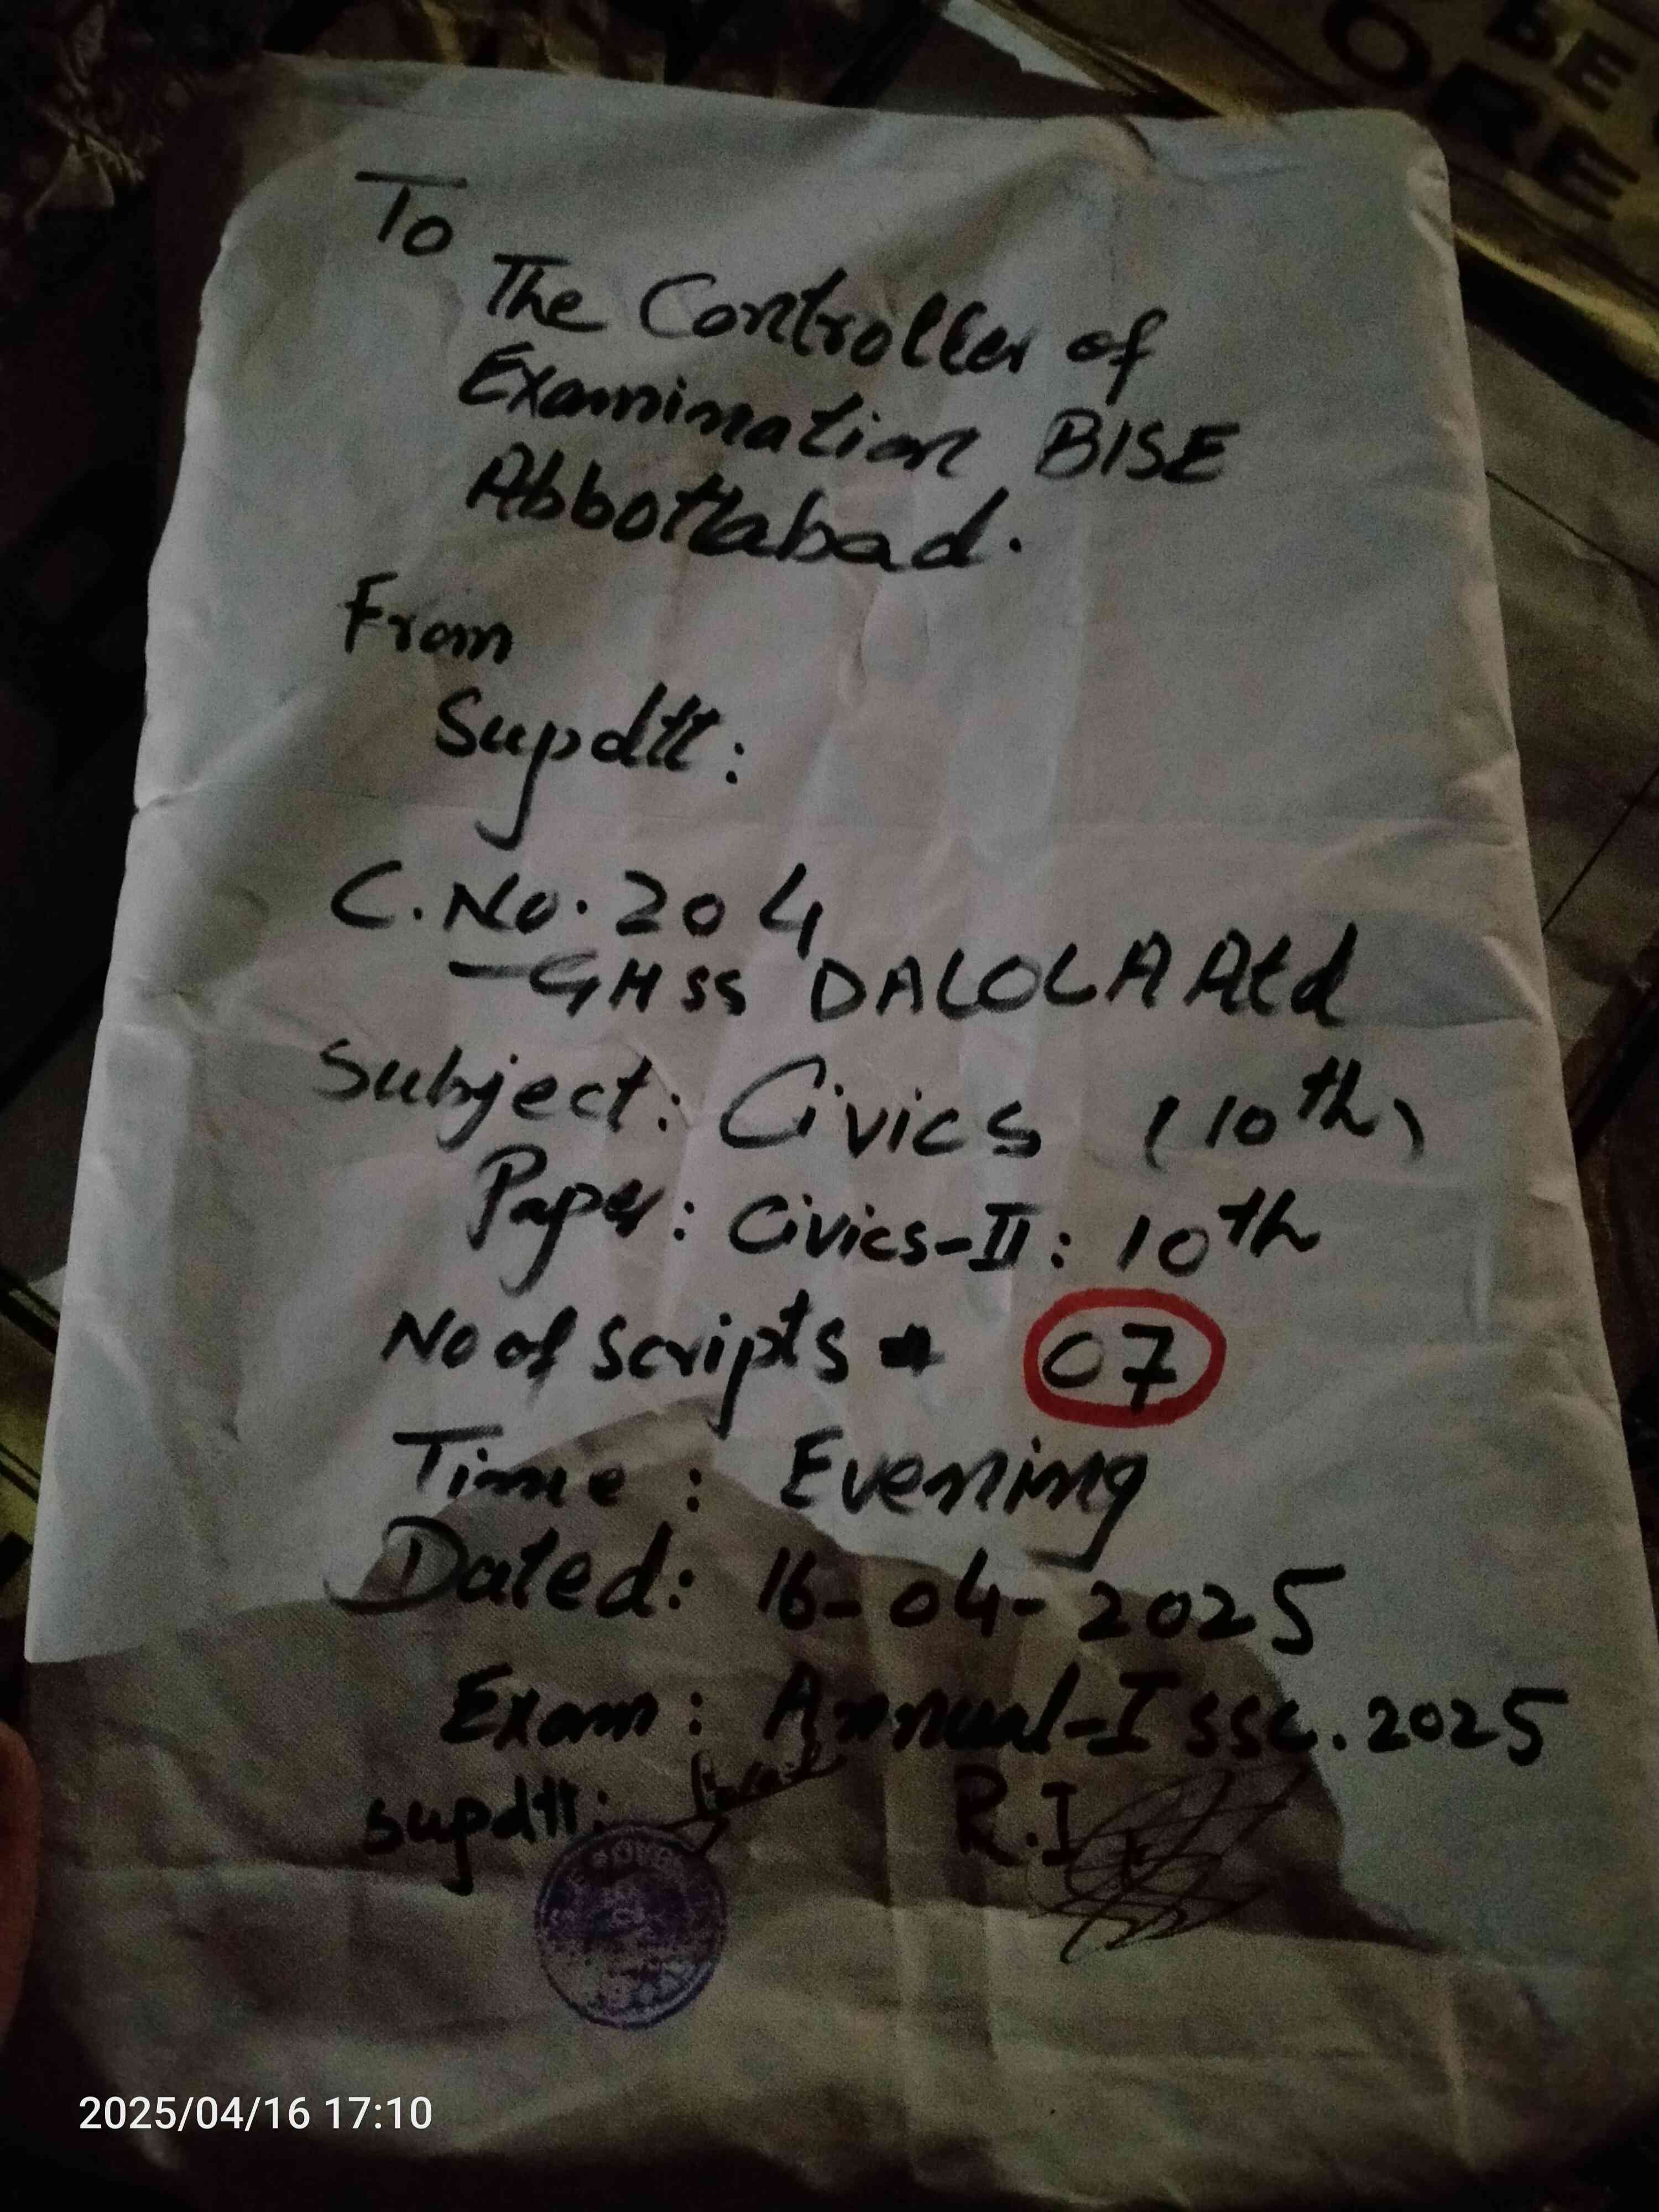 BE
ORE
To
The Controller of
Examination BISE
Abbottabad.
From
Supdtt:
C.No. 204
GHSS DALOLA Atd
Subject: Civics (10th)
Paper: Civics-II: 10th
No of Scripts 07
Time: Evening
Dated: 16-04-2025
Exam: Annual-I SSC. 2025
supdtt: R.I
2025/04/16 17:10